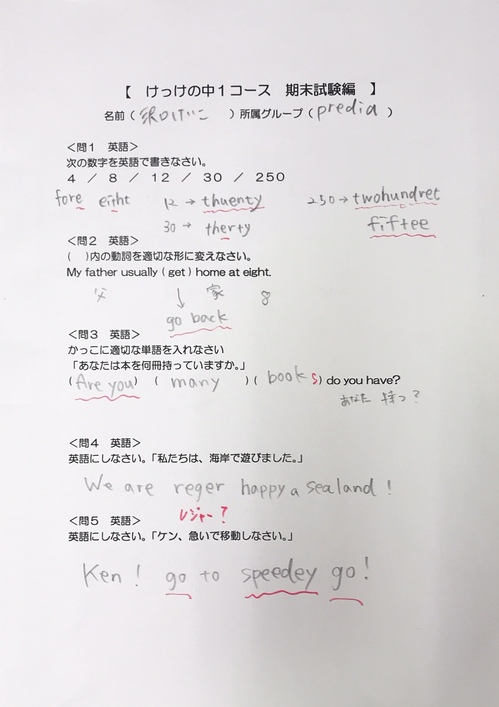 【 けっけの中1コース 期末試験編 】
名前( 沢口けいこ )所属グループ( predia )
<問1 英語>
次の数字を英語で書きなさい。
4 / 8 / 12 / 30 / 250
fore eitht 12→ thuenty 250→ twohundret
30→ therty fiftee
<問2 英語>
( )内の動詞を適切な形に変えなさい。
My father usually ( get ) home at eight.
父 ↓ 家 8
go back
<問3 英語>
かっこに適切な単語を入れなさい
「あなたは本を何冊持っていますか。」
( Are you ) ( many )( books ) do you have?
あなた 持つ?
<問4 英語>
英語にしなさい。「私たちは、海岸で遊びました。」
We are reger happy a sealand !
<問5 英語> レジャー?
英語にしなさい。「ケン、急いで移動しなさい。」
Ken ! go to speedey go!